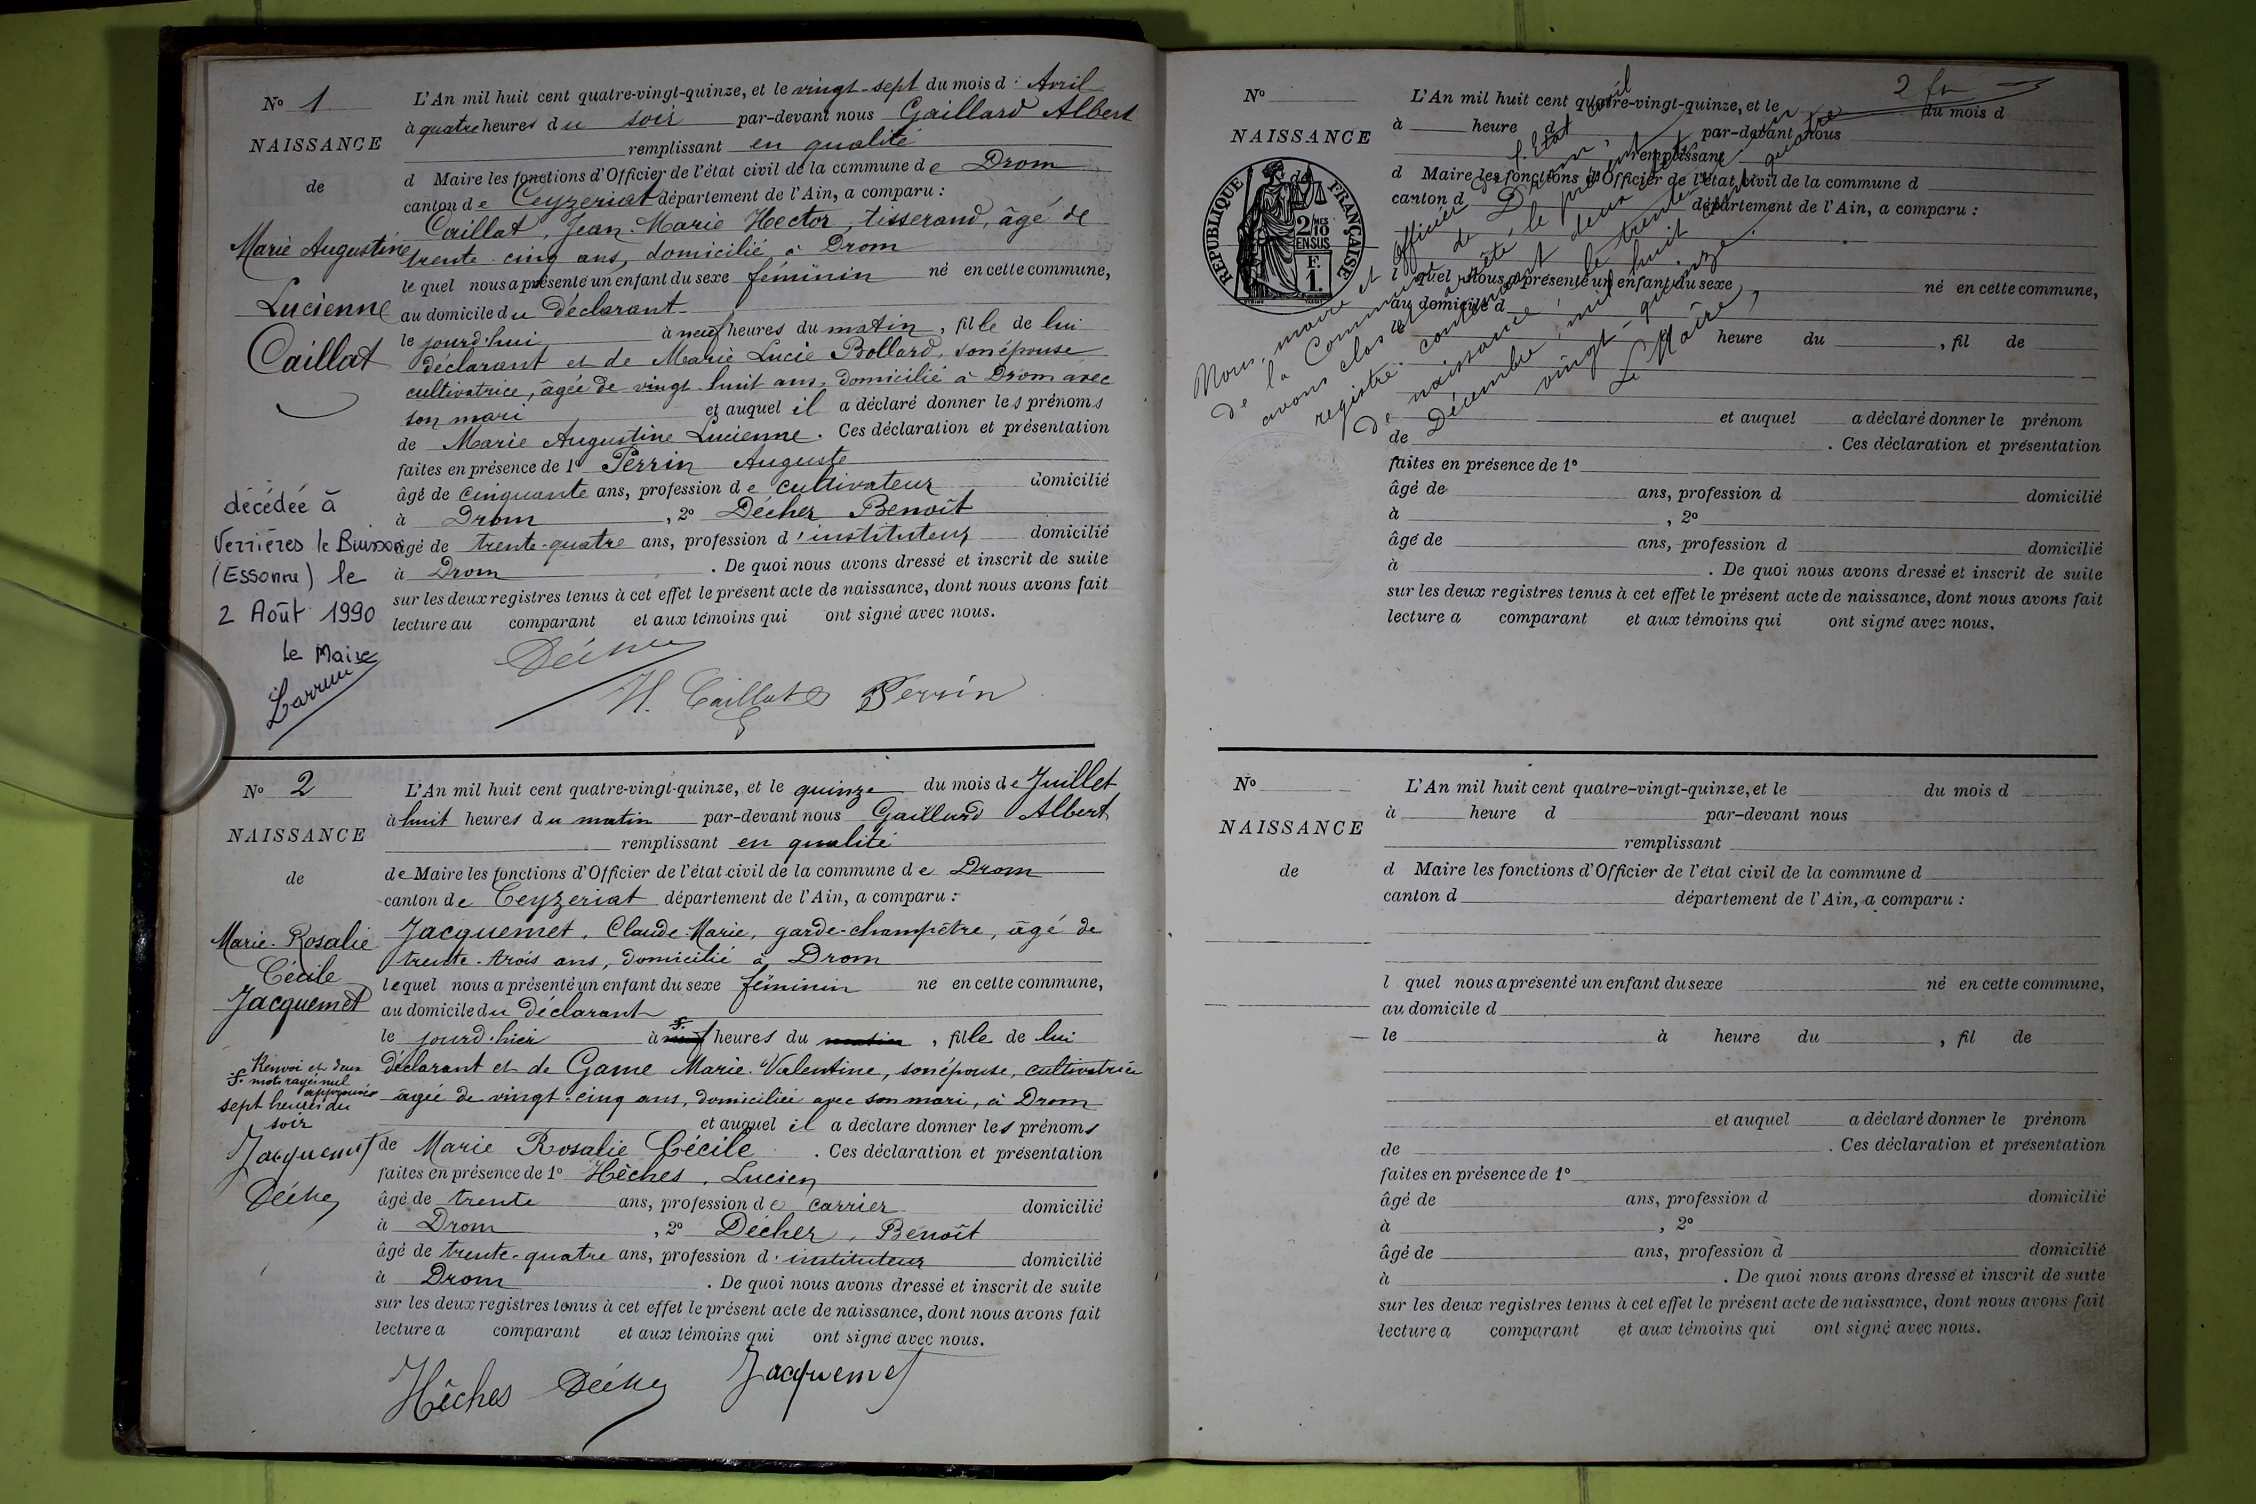 N° 1
NAISSANCE
de
Marie Augustine
Lucienne
Caillat
décédée à
Verrières le Buisson
(Essonne) le
2 Août 1990
le Maire
L'An mil huit cent quatre-vingt-quinze, et le vingt-sept du mois d' Avril
à quatre heures du soir par-devant nous Gaillard Albert
remplissant en qualité
d Maire les fonctions d'Officier de l'état civil de la commune de Drom
canton de Ceyzeriat département de l'Ain, a comparu :
Caillat, Jean-Marie Hector, tisserand, âgé de
trente-cinq ans, domicilié à Drom
lequel nous a présenté un enfant du sexe féminin né en cette commune,
au domicile du déclarant
le jourd'hui à neuf heures du matin, fille de lui
déclarant et de Marie Lucie Bollard, son épouse
cultivatrice, âgée de vingt huit ans, domicilié à Drom avec
son mari et auquel il a déclaré donner les prénoms
de Marie Augustine Lucienne. Ces déclaration et présentation
faites en présence de 1° Perrin Auguste
âgé de cinquante ans, profession de cultivateur domicilié
à Drom, 2° Décher Benoît
âgé de trente-quatre ans, profession d'instituteur domicilié
à Drom. De quoi nous avons dressé et inscrit de suite
sur les deux registres tenus à cet effet le présent acte de naissance, dont nous avons fait
lecture au comparant et aux témoins qui ont signé avec nous.
Décher
H. Caillat Perrin
N° 2
NAISSANCE
de
Marie-Rosalie
Cécile
Jacquemet
Renvoi et deux
mots rayés nul
approuvés
sept heures du
soir
Jacquemet
Décher
L'An mil huit cent quatre-vingt-quinze, et le quinze du mois de Juillet
à huit heures du matin par-devant nous Gaillard Albert
remplissant en qualité
de Maire les fonctions d'Officier de l'état civil de la commune de Drom
canton de Ceyzeriat département de l'Ain, a comparu :
Jacquemet, Claude-Marie, garde-champêtre, âgé de
trente-trois ans, domicilié à Drom
lequel nous a présenté un enfant du sexe féminin né en cette commune,
au domicile du déclarant
le jourd'hier à heures du matin, fille de lui
déclarant et de Game Marie-Valentine, son épouse, cultivatrice
âgée de vingt-cinq ans, domiciliée avec son mari, à Drom
et auquel il a déclaré donner les prénoms
de Marie Rosalie Cécile. Ces déclaration et présentation
faites en présence de 1° Hêches, Lucien
âgé de trente ans, profession de carrier domicilié
à Drom, 2° Décher, Benoît
âgé de trente-quatre ans, profession d'instituteur domicilié
à Drom. De quoi nous avons dressé et inscrit de suite
sur les deux registres tenus à cet effet le présent acte de naissance, dont nous avons fait
lecture a comparant et aux témoins qui ont signé avec nous.
Hêches Décher Jacquemet
N°
NAISSANCE
de
RÉPUBLIQUE FRANÇAISE
2/10 MES
EN SUS
F.
1.
L'An mil huit cent quatre-vingt-quinze, et le du mois d
à heure d par-devant nous
remplissant
d Maire les fonctions d'Officier de l'état civil de la commune d
canton d département de l'Ain, a comparu :
l quel nous a présenté un enfant du sexe né en cette commune,
au domicile d
le heure du , fil de
et auquel a déclaré donner le prénom
de . Ces déclaration et présentation
faites en présence de 1°
âgé de ans, profession d domicilié
à , 2°
âgé de ans, profession d domicilié
à . De quoi nous avons dressé et inscrit de suite
sur les deux registres tenus à cet effet le présent acte de naissance, dont nous avons fait
lecture a comparant et aux témoins qui ont signé avec nous.
Nous, maire et Officier de l'Etat civil
de la Commune de Drom,
avons clos et arrêté le présent
registre contenant deux
de naissance, le trente-et-un
Décembre, mil huit cent quatre
vingt-quinze.
Le Maire,
N°
NAISSANCE
de
L'An mil huit cent quatre-vingt-quinze, et le du mois d
à heure d par-devant nous
remplissant
d Maire les fonctions d'Officier de l'état civil de la commune d
canton d département de l'Ain, a comparu :
l quel nous a présenté un enfant du sexe né en cette commune,
au domicile d
le à heure du , fil de
et auquel a déclaré donner le prénom
de . Ces déclaration et présentation
faites en présence de 1°
âgé de ans, profession d domicilié
à , 2°
âgé de ans, profession d domicilié
à . De quoi nous avons dressé et inscrit de suite
sur les deux registres tenus à cet effet le présent acte de naissance, dont nous avons fait
lecture a comparant et aux témoins qui ont signé avec nous.